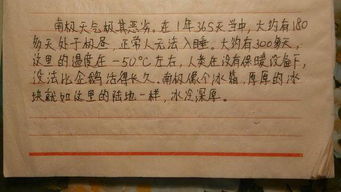 南极天气极其恶劣。在1年365天当中，大约有180
多天处于极昼，正常人无法入睡，大约有300多天，
这里的温度在-50℃左右，人类在没有保暖设备下，
没法比企鹅活得长久。南极像个冰箱，厚厚的冰
块就如这里的陆地一样，冰冷深厚。